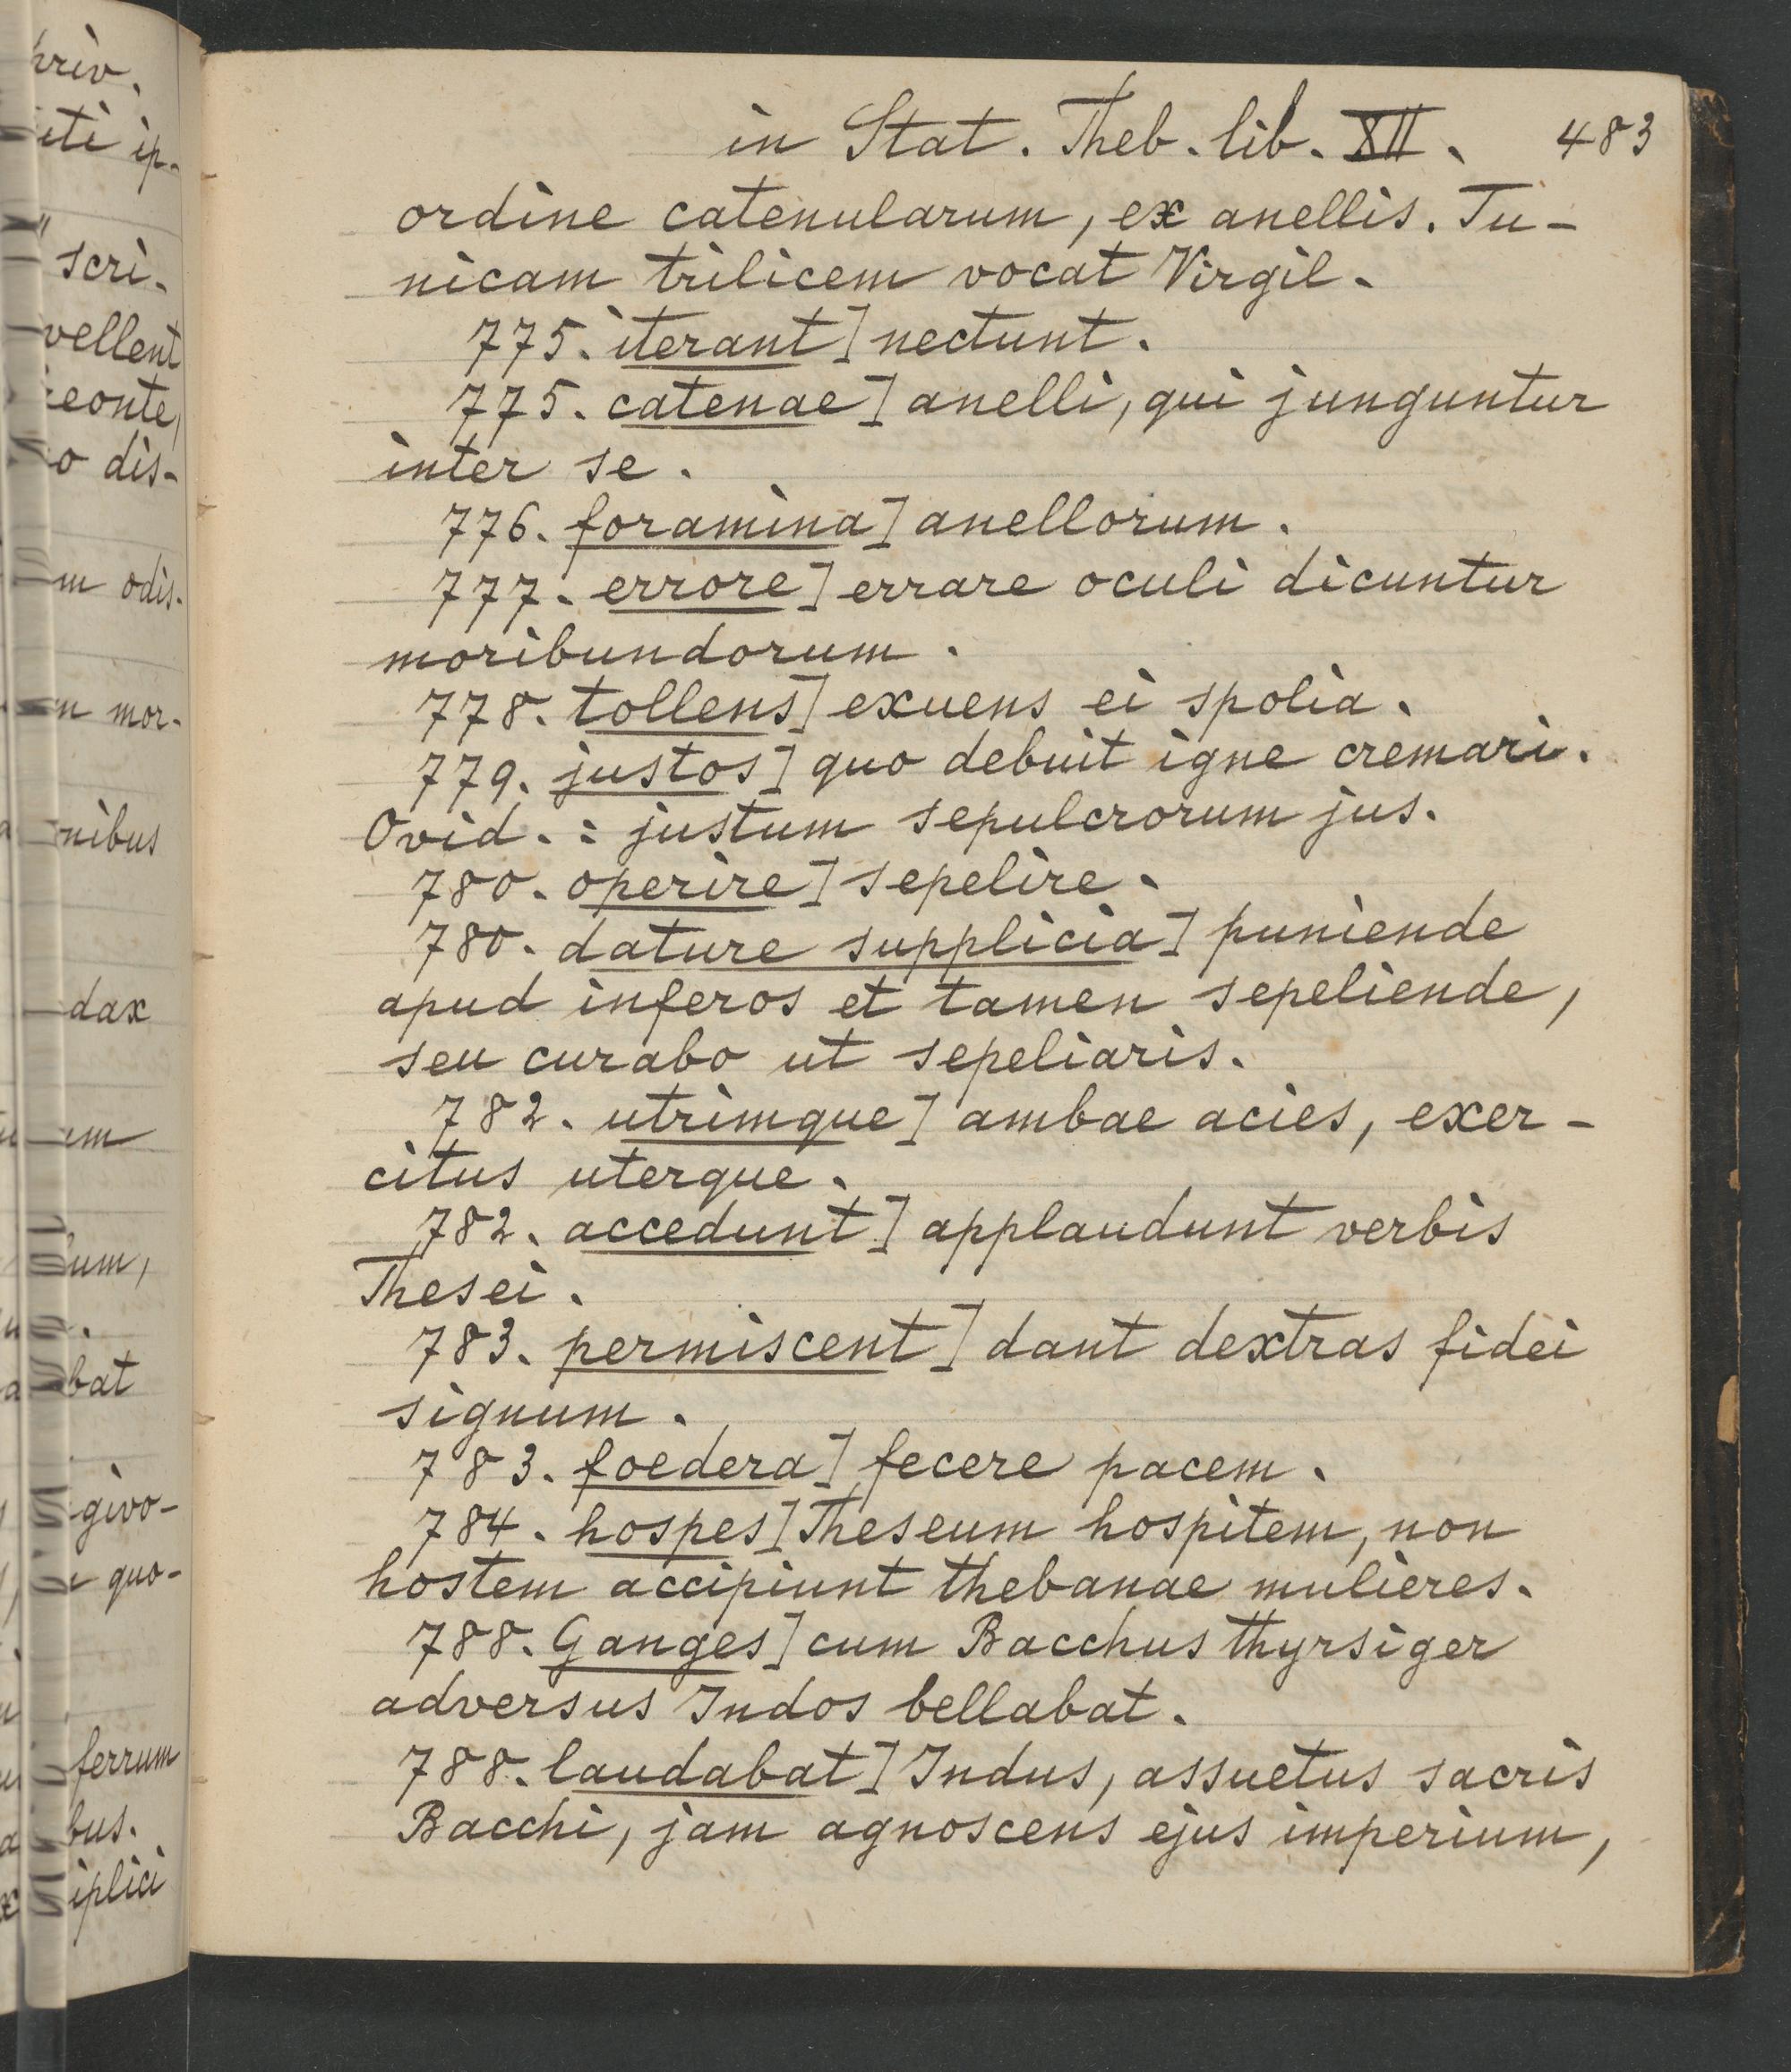 in Stat. Theb. lib. XII. 483
ordine catenularum, ex anellis. Tu-
nicam trilicem vocat Virgil.
775. iterant] nectunt.
775. catenae] anelli, qui junguntur
inter se.
776. foramina] anellorum.
777. errore] errare oculi dicuntur
moribundorum.
778. tollens] exuens ei spolia.
779. justos] quo debuit igne cremari.
Ovid.: justum sepulcrorum jus.
780. operire] sepelire.
780. dature supplicia] puniende
apud inferos et tamen sepeliende,
seu curabo ut sepeliaris.
782. utrimque] ambae acies, exer-
citus uterque.
782. accedunt] applaudunt verbis
Thesei.
783. permiscent] dant dextras fidei
signum.
783. foedera] fecere pacem.
784. hospes] Theseum hospitem, non
hostem accipiunt thebanae mulieres.
788. Ganges] cum Bacchus thyrsiger
adversus Indos bellabat.
788. laudabat] Indus, assuetus sacris
Bacchi, jam agnoscens ejus imperium,